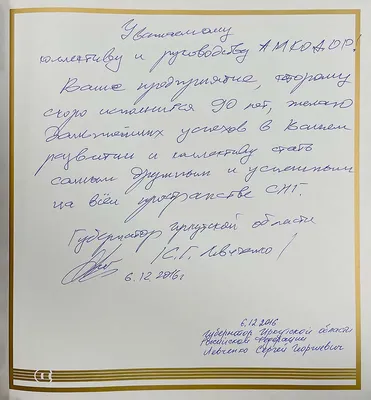 Уважаемому
коллективу и руководству АМКОДОР!
Ваше предприятие, которому
скоро исполнится 90 лет, желаю
дальнейших успехов в Вашем
развитии и коллективу стать
самым дружным и успешным
на всём пространстве СНГ.
Губернатор Иркутской области
/С.Г. Левченко/
6.12.2016г
6.12.2016
Губернатор Иркутской области
Российской Федерации
Левченко Сергей Георгиевич